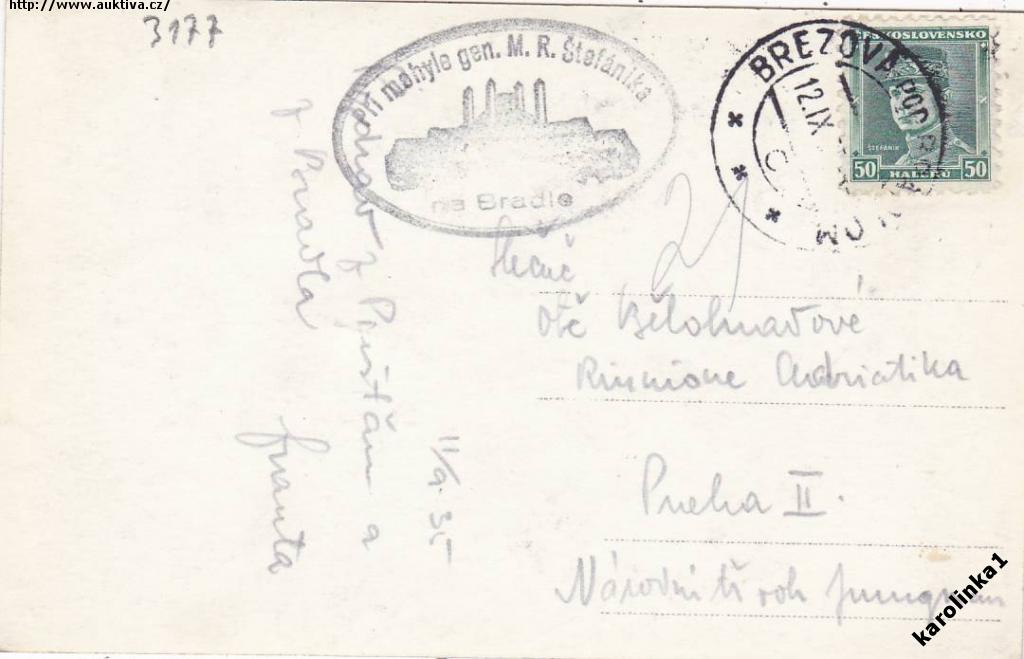 http://www.auktiva.cz/
3177
Při mohyle gen. M. R. Štefánika
na Bradle
BREZOVÁ POD
12.IX
ČESKOSLOVENSKO
ŠTEFÁNIK
50 HALÉŘŮ 50
Pozdrav z Piešťan a
z Bradla
Franta
11/9. 35
Slečně
Bělohradové
Riunione Adriatika
Praha II.
Národní tř roh Jungman
karolinka1